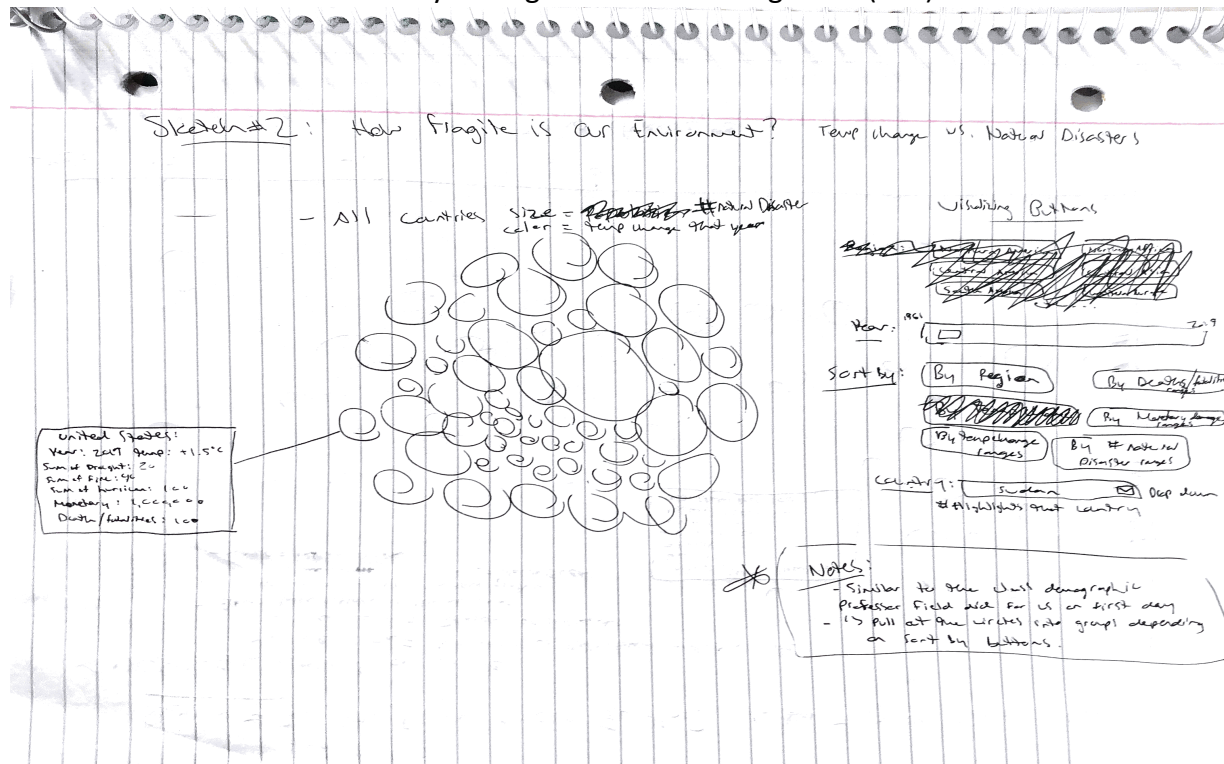 Sketch #2: How Fragile is Our Environment? Temp change vs. Natural Disasters
- All Countries size = # natural Disaster
color = temp change that year
Visualizing Buttons
Year: 1961 2019
Sort by: By Region By Deaths/fatalities ranges
By Monetary damage ranges
By temp change ranges By # natural Disaster ranges
Country: Sweden Drop down
# Highlights that country
United States:
Year: 2017 temp: +1.5°C
Sum of Drought: 20
Sum of Fire: 40
Sum of hurricane: 100
Monetary: 1,000,000
Death/fatalities: 100
Notes:
- Similar to the class demographic
Professer Field did for us on first day
- Pull at the circles into groups depending
on Sort by buttons.